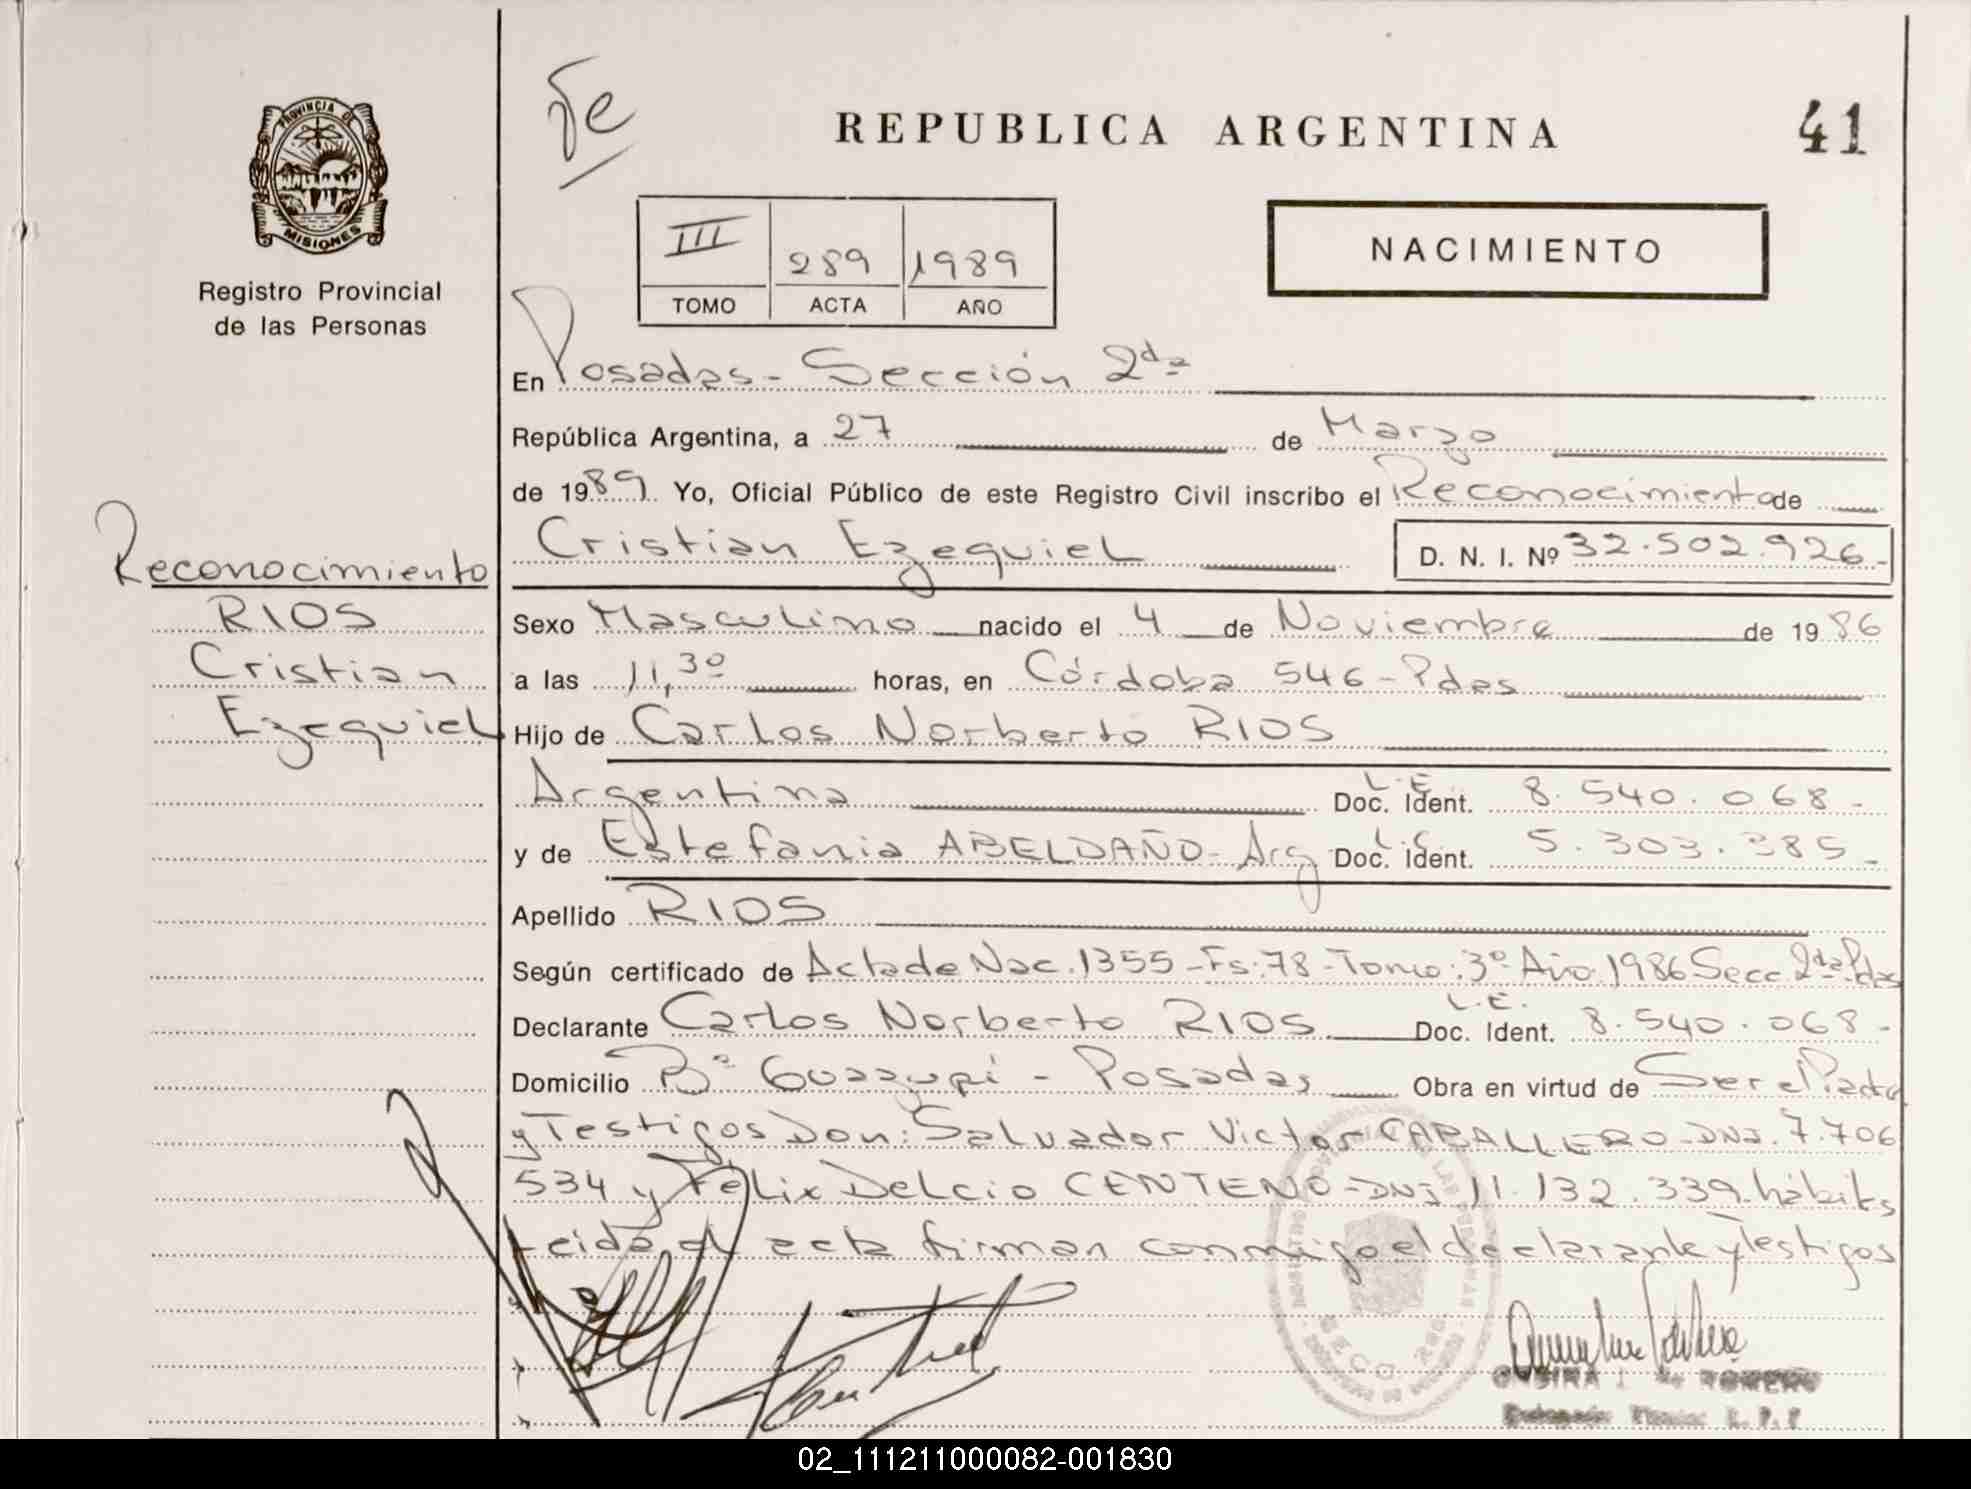 Je
REPUBLICA ARGENTINA
41
PROVINCIA DE
MISIONES
Registro Provincial
de las Personas
III 289 1989
TOMO ACTA AÑO
NACIMIENTO
En Posadas - Sección 2da
República Argentina, a 27 de Marzo
de 1989. Yo, Oficial Público de este Registro Civil inscribo el Reconocimiento de
Cristian Ezequiel D. N. I. Nº 32.502.926-
Reconocimiento
RIOS
Cristian
Ezequiel
Sexo Masculino nacido el 4 de Noviembre de 1986
a las 11,30 horas, en Córdoba 546 - Pdas
Hijo de Carlos Norberto RIOS
Argentina L.E. Doc. Ident. 8.540.068-
y de Estefania ABELDAÑO - Arg L.C. Doc. Ident. 5.303.385-
Apellido RIOS
Según certificado de Acta de Nac. 1355 - Fs: 78 - Tomo: 3º Año 1986 Secc 2da Pdas
Declarante Carlos Norberto RIOS L.E. Doc. Ident. 8.540.068-
Domicilio Bº Guazupí - Posadas Obra en virtud de Ser el Padre
y Testigos Don: Salvador Victor CABALLERO - DNI. 7.706
534 y Felix Delcio CENTENO - DNI 11.132.339. hábiles
Leida el acta firman conmigo el declarante y Testigos
DE ROMERO
02_111211000082-001830